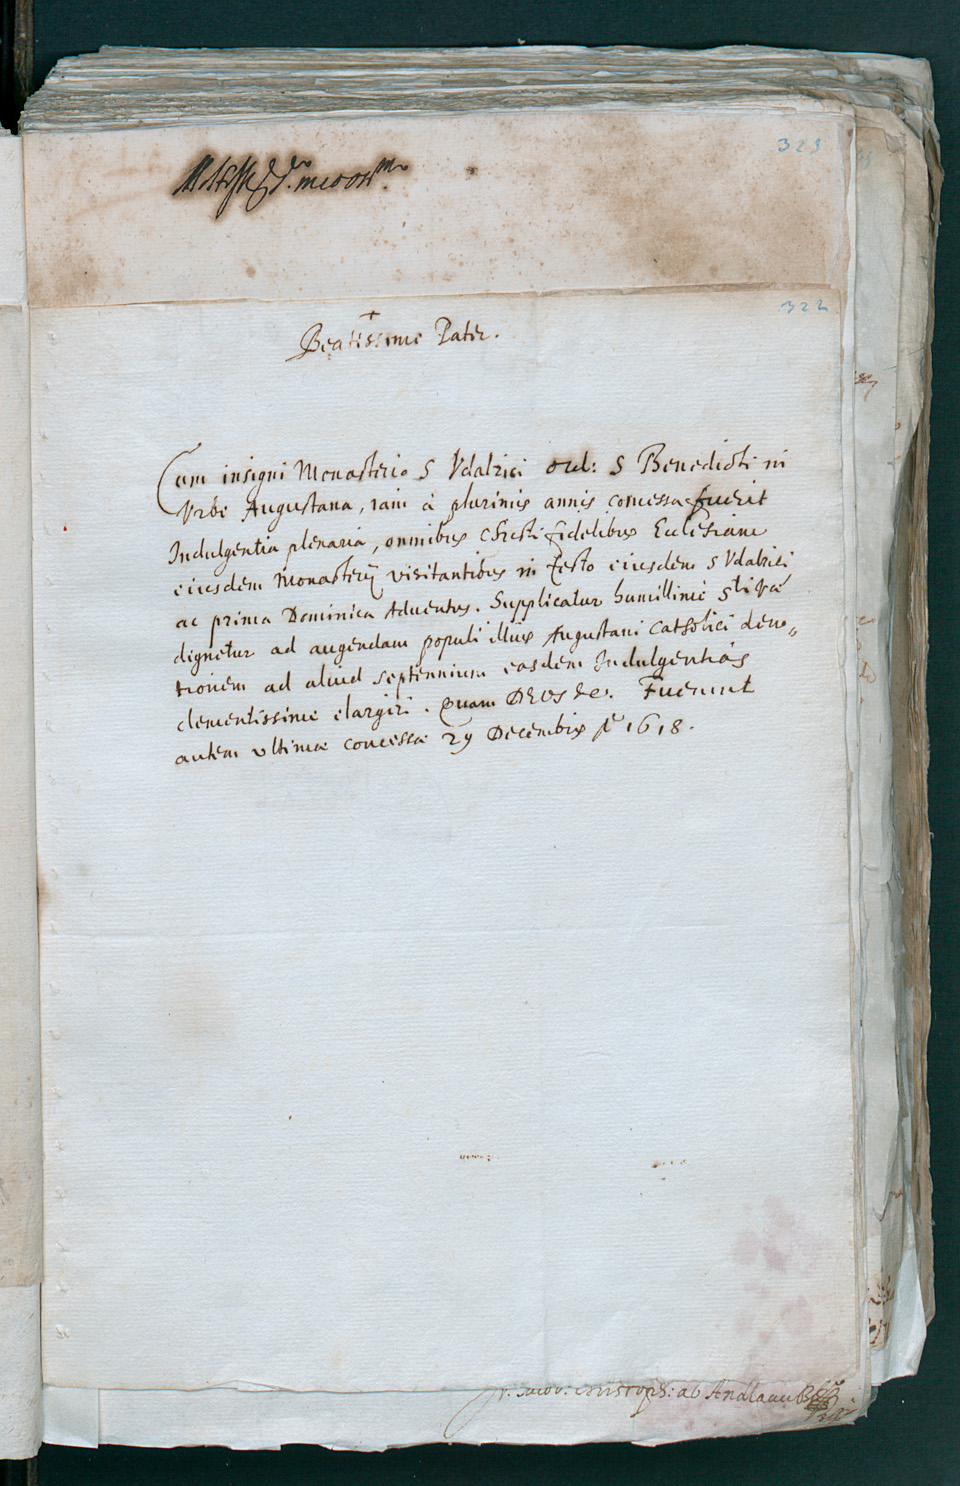 323
322
+
Beatissime Pater.
Cum insigni Monasterio S Vdalrici Ord: S Benedicti in
Vrbe Augustana, iam à plurimis annis concessa fuerit
Indulgentia plenaria, omnibus Christi fidelibus Ecclesiam
eiusdem Monasterij visitantibus in festo eiusdem S Vdalrici
ac prima Dominica Aduentus. Supplicatur humillimè Sti Va
dignetur ad augendam populi illius Augustani Catholici deuo„
tionem ad aliud septennium easdem Indulgentias
clementissime elargiri. Quam DEVS &c. Fuerunt
autem vltimæ concessæ 29 Decembris 1618.
ab Andlaw